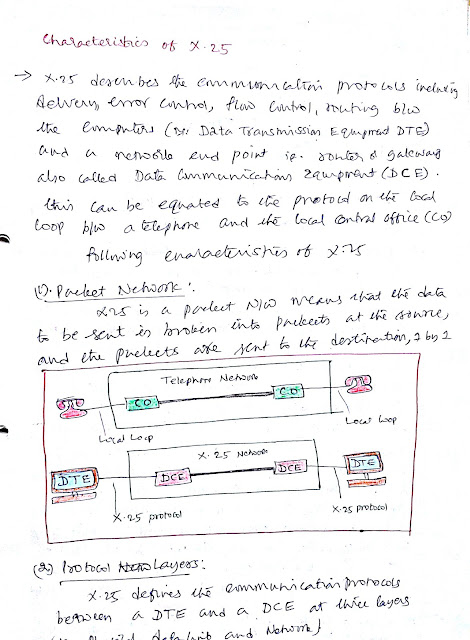 Characteristics of X.25
→ X.25 describes the communication protocols including
delivery, error control, flow control, routing b/w
the Computers (or Data Transmission Equipment DTE)
and a network end point i.e. router or gateway
also called Data Communications Equipment (DCE).
this can be equated to the protocol on the local
loop b/w a telephone and the local central office (CO)
following characteristics of X.25
(1). Packet Network:
X.25 is a packet N/W means that the data
to be sent is broken into packets at the source,
and the packets are sent to the destination, 1 by 1
Telephone Network
CO CO
Local Loop
Local Loop
X.25 Network
DTE DCE DCE DTE
X.25 protocol
X.25 protocol
(2) Protocol Layers:
X.25 defines the communication protocols
between a DTE and a DCE at three layers
and Network)